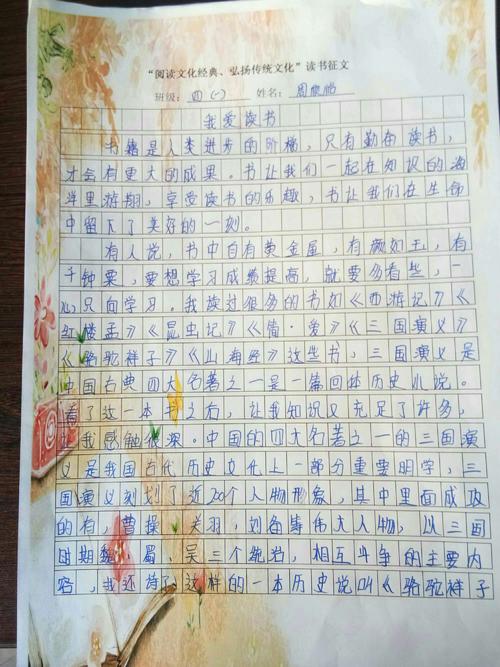 “阅读文化经典、弘扬传统文化”读书征文
班级：四(一) 姓名：周
我爱读书
书籍是人类进步的阶梯，只有勤奋读书，
才会有更大的成果。书让我们一起在知识的海
洋里游翔，享受读书的乐趣，书让我们在生命
中留下了美好的一刻。
有人说，书中自有黄金屋，有颜如玉，有
千钟粟，要想学习成绩提高，就要多看些，一
心只向学习。我读过很多的书如《西游记》《
红楼孟》《昆虫记》《简·爱》《三国演义》
《骆驼祥子》《山海经》这些书，三国演义是
中国古典四大名著之一是一篇回体历史小说。
看了这一本书之右，让我知识又充足了许多，
让我感触很深。中国的四大名著之一的三国演
义是我国古代历史文化上一部分重要明学，三
国演义刻划了近200个人物形象，其中里面成攻
的有，曹操，关羽，刘备等伟大人物，以三国
时期魏、蜀、吴三个统治，相互斗争的主要内
容，我还读了这样的一本历史说叫《骆驼祥子